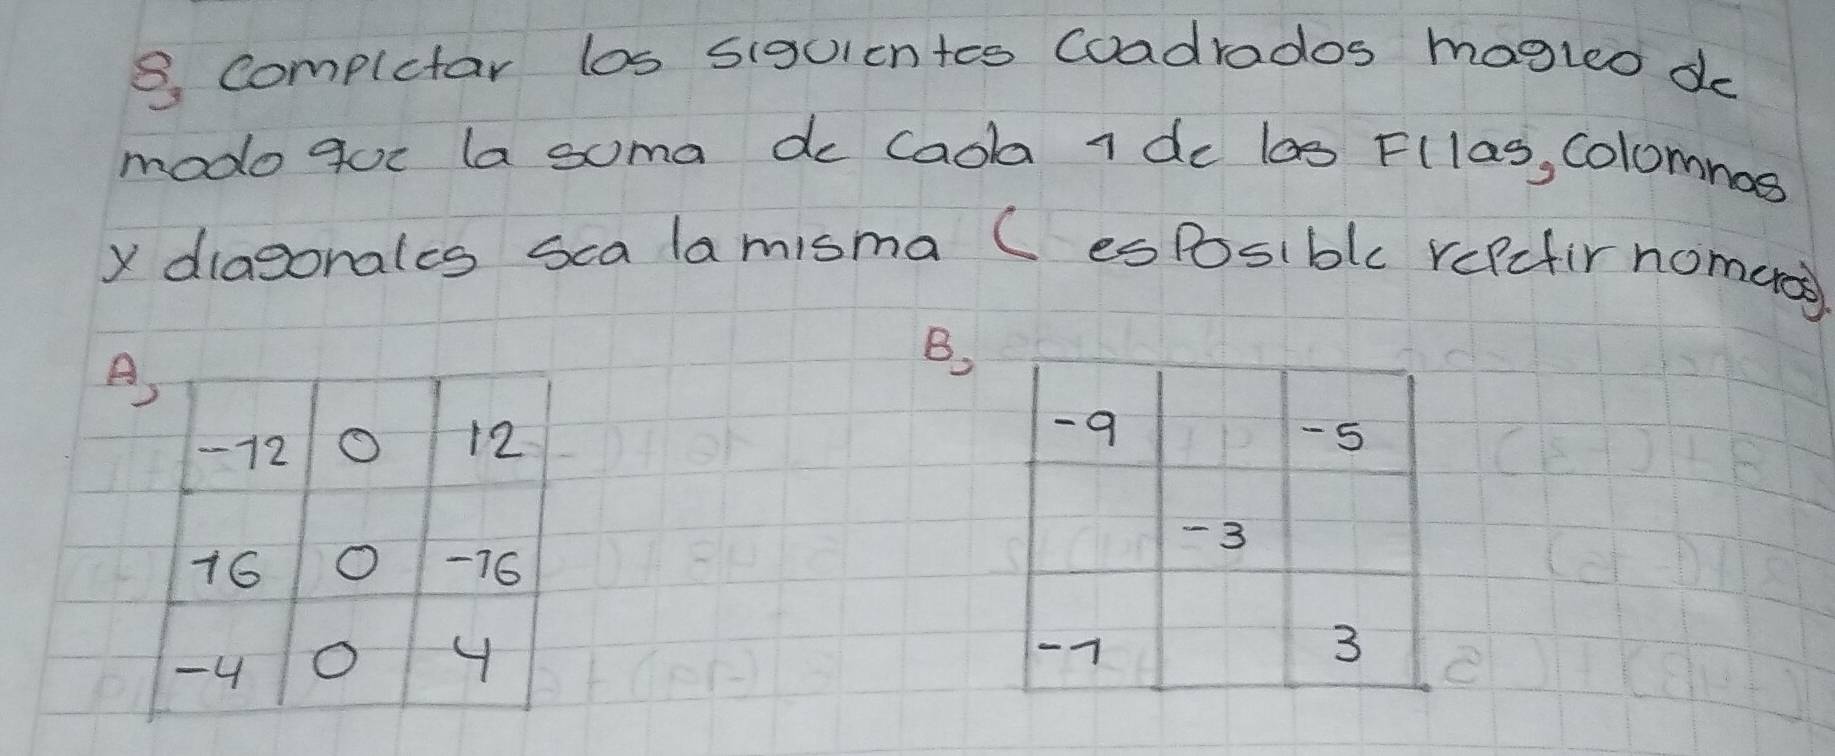 8, completar los siguientes cuadrados magico de
modo que la suma de cada 1 de las Filas, columnas
y diagonales sea la misma ( es Posible repetir numeros).
A, B,
-12 0 12
16 0 -16
-4 0 4
-9 -5
-3
-1 3